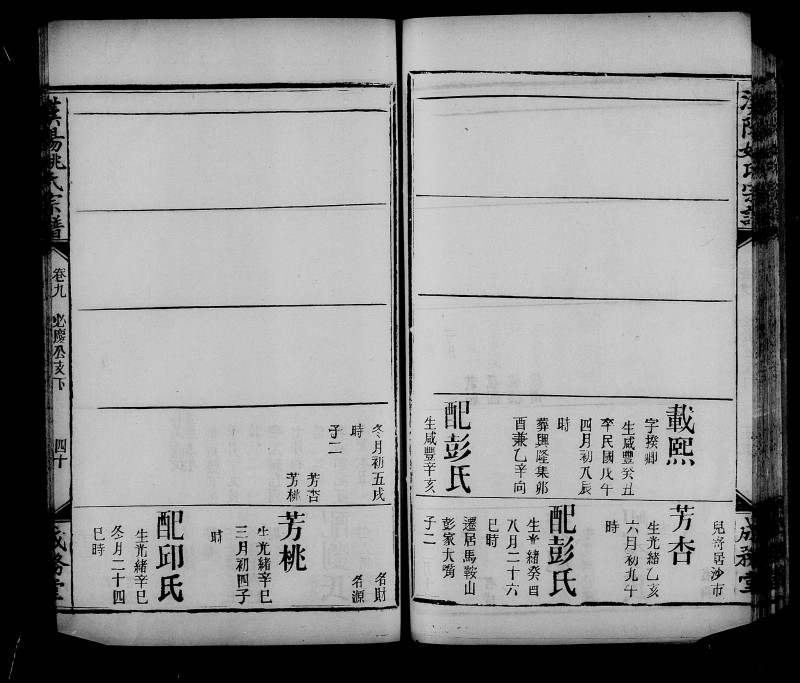 漢陽姚氏宗譜
成務堂
載熙
字揆卿
生咸豐癸丑
卒民國戊午
四月初八辰
時
葬興隆集卯
酉兼乙辛向
配彭氏
生咸豐辛亥
兒寄居沙市
芳杏
生光緒乙亥
六月初九午
時
配彭氏
生光緒癸酉
八月二十六
巳時
遷居馬鞍山
彭家大嘴
子二
冬月初五戌
時
子二
芳杏
芳桃
名財
名源
芳桃
生光緒辛巳
三月初四子
時
配邱氏
生光緒辛巳
冬月二十四
巳時
漢陽姚氏宗譜
卷九
必慶公亥下
四十
成務堂